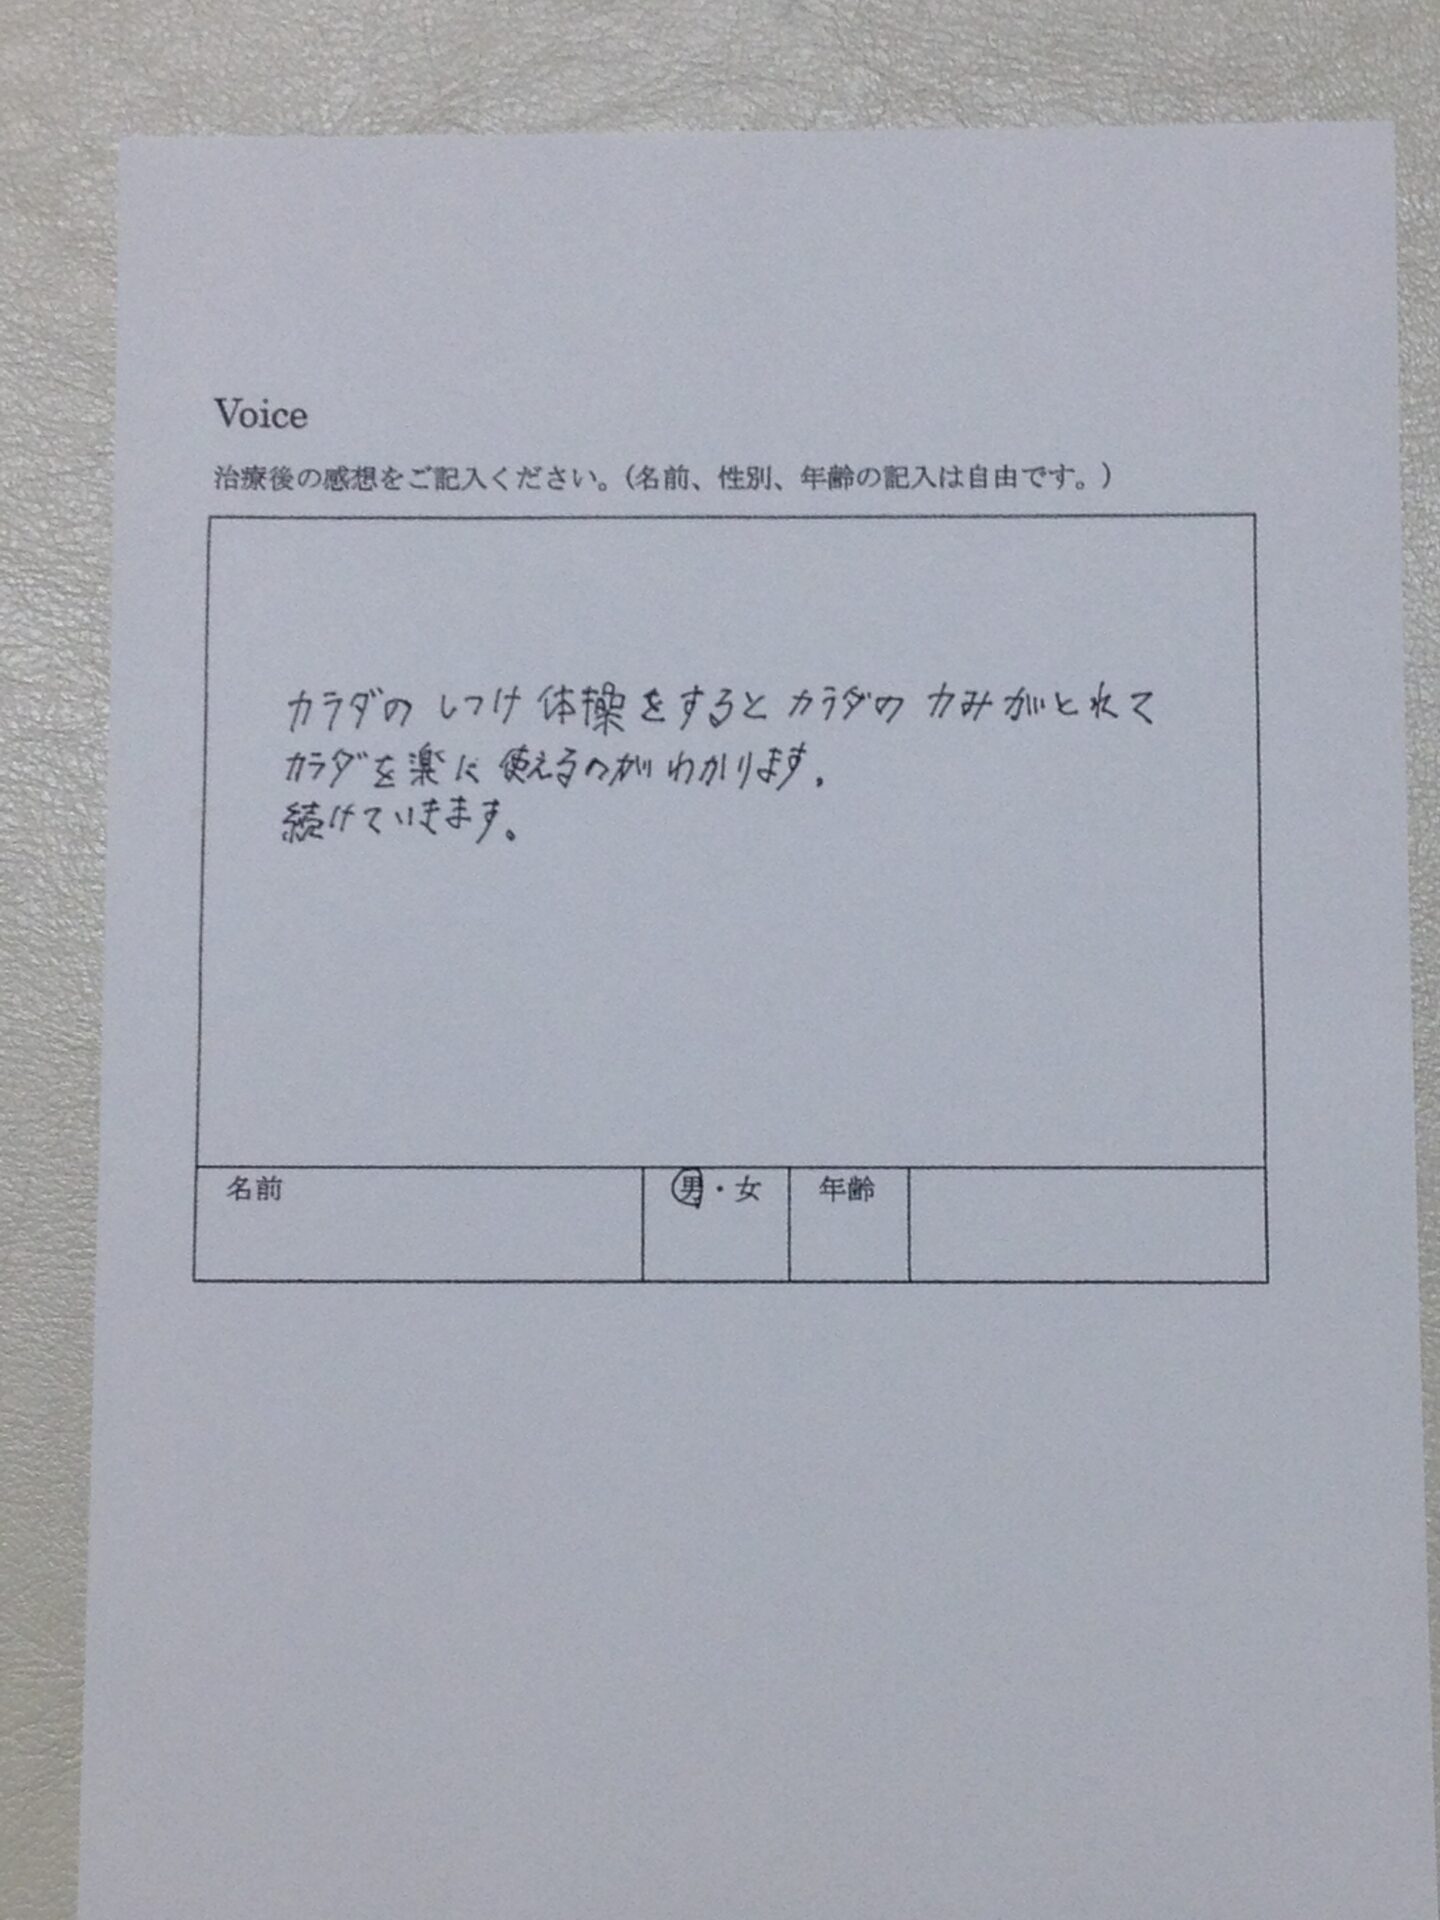 Voice
治療後の感想をご記入ください。（名前、性別、年齢の記入は自由です。）
カラダの しつけ 体操をするとカラダの力みがとれて
カラダを楽に使えるのがわかります。
続けていきます。
名前 男・女 年齢